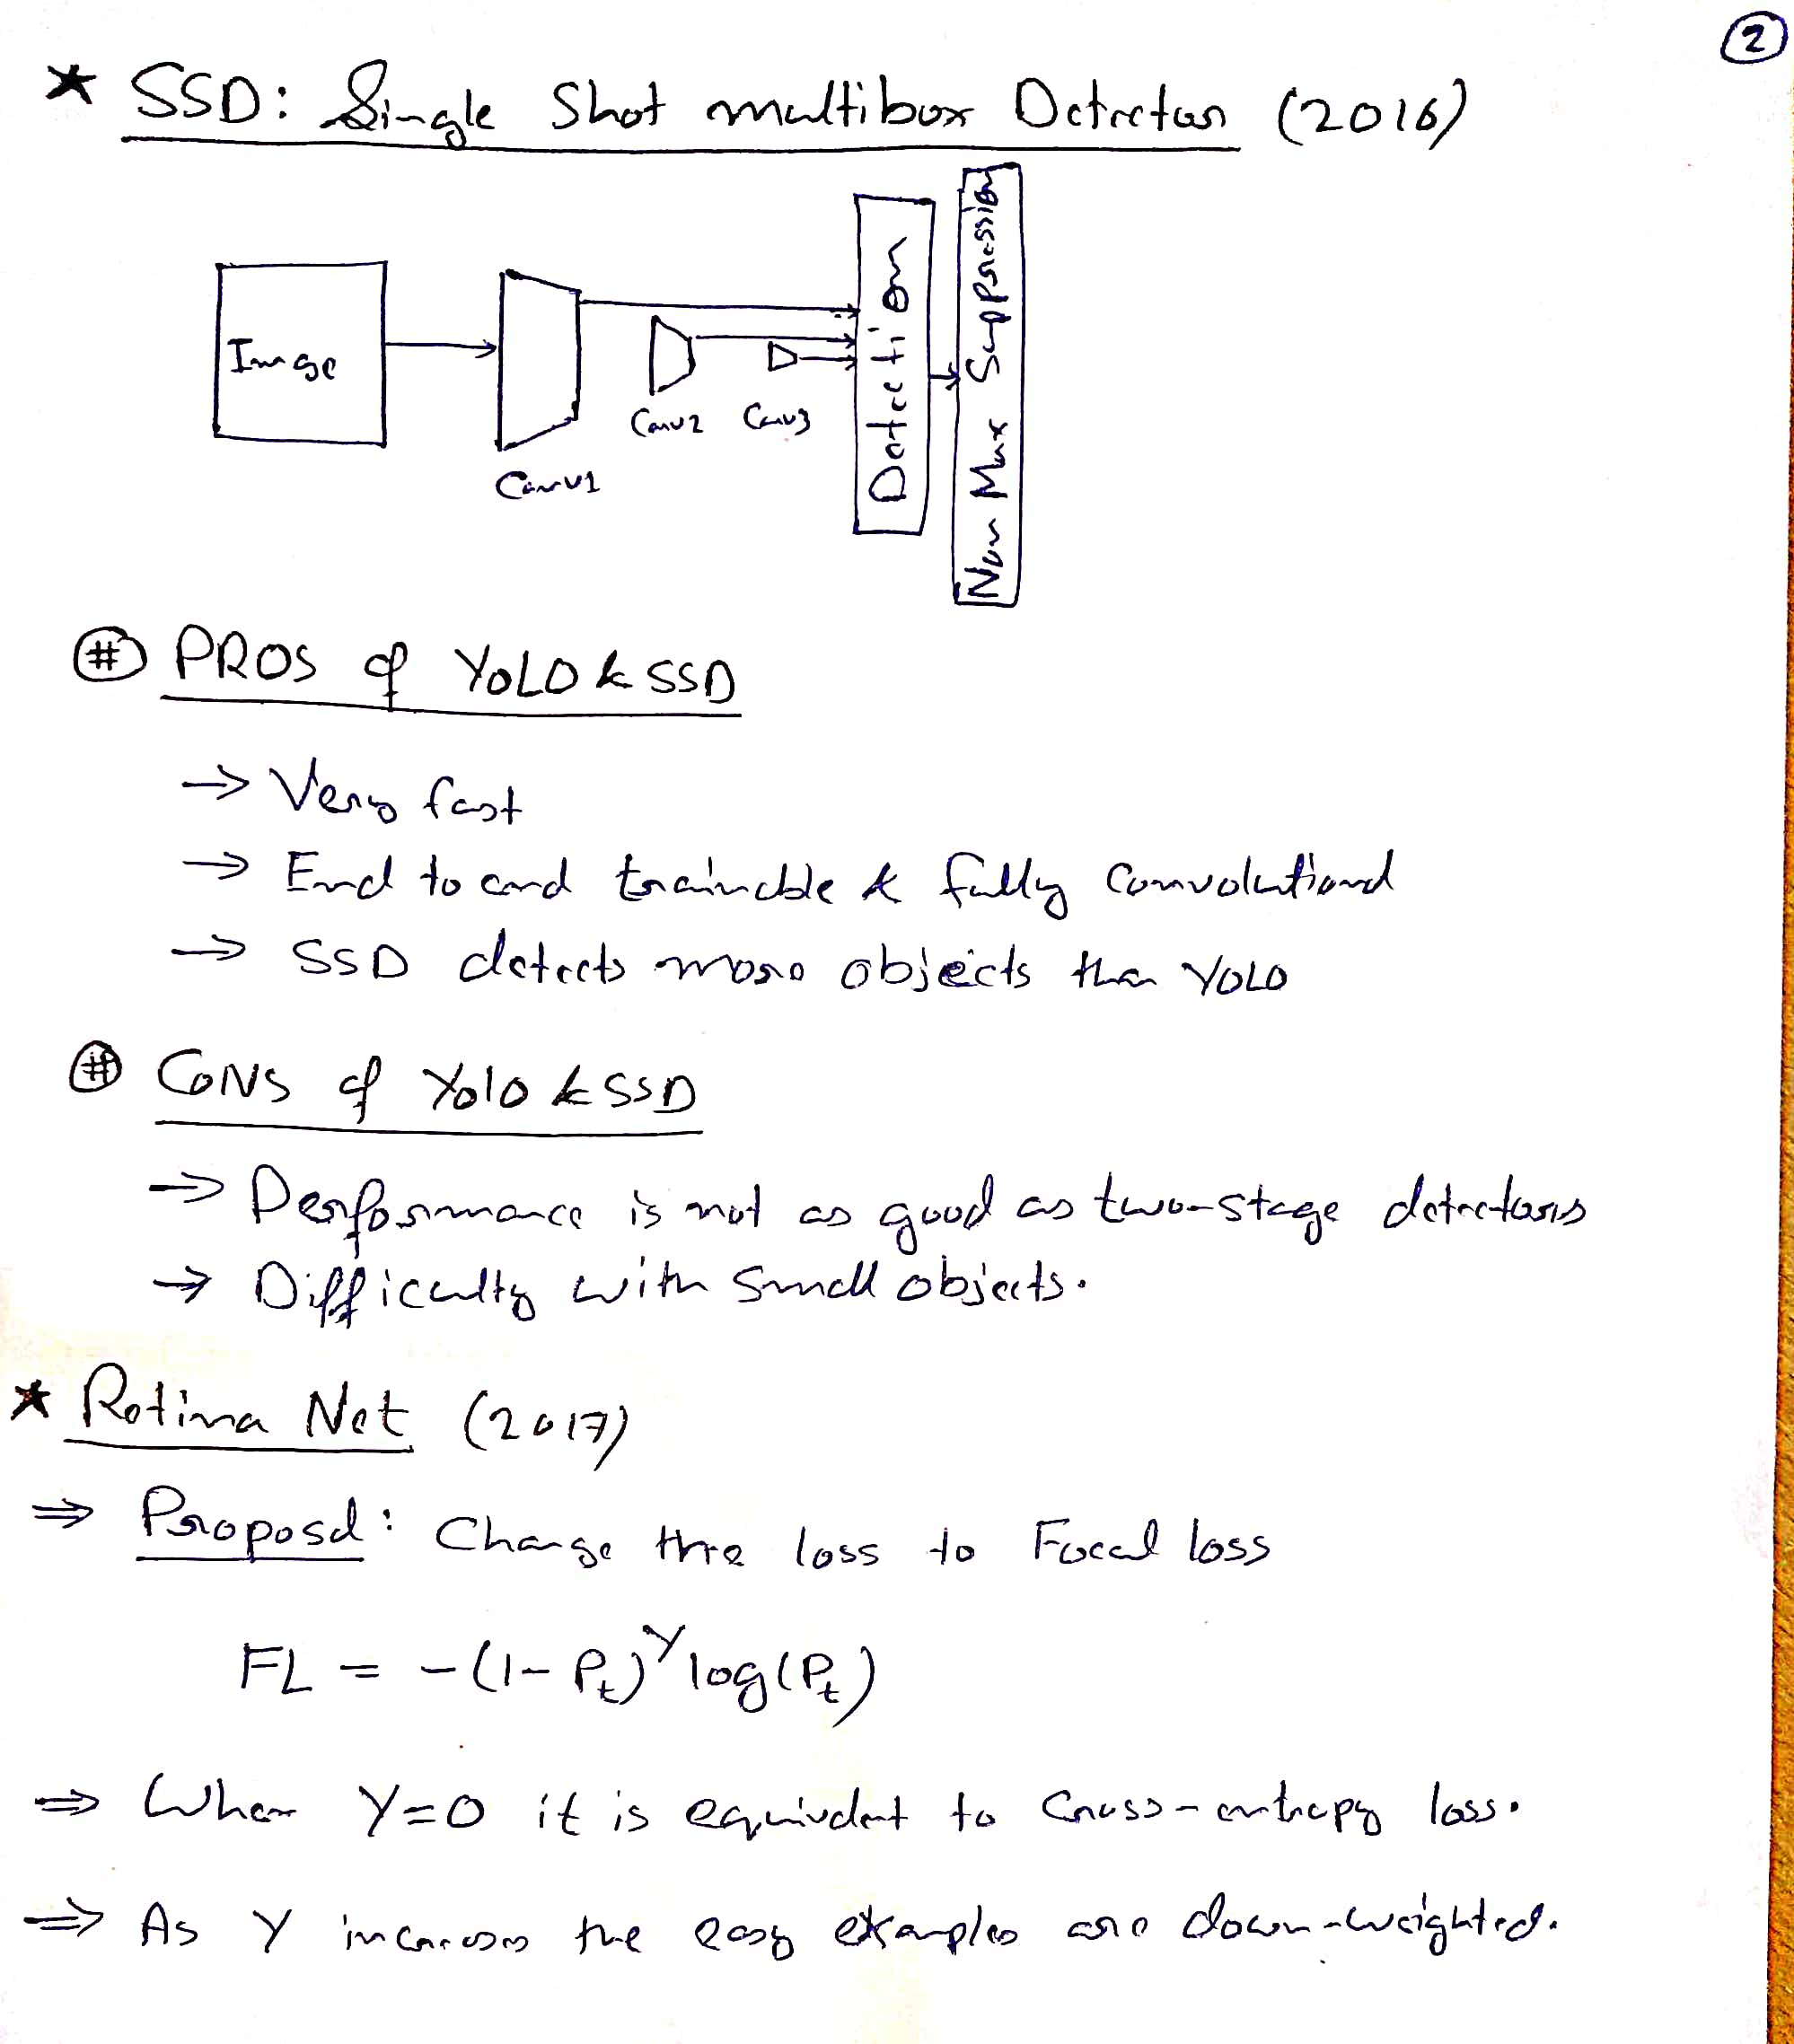 2
* SSD: Single Shot multibox Detector (2016)
Image
Conv1
Conv2
Conv3
Detection
Non Max Suppression
# PROS of YOLO & SSD
→ Very fast
→ End to end trainable & fully Convolutional
→ SSD detects more objects than YOLO
# CONS of Yolo & SSD
→ Performance is not as good as two-stage detectors
→ Difficulty with small objects.
* Retina Net (2017)
⇒ Proposal: Change the loss to Focal loss
FL = -(1-Pt)^γ log(Pt)
⇒ When γ=0 it is equivalent to Cross-entropy loss.
⇒ As γ increases the easy examples are down-weighted.